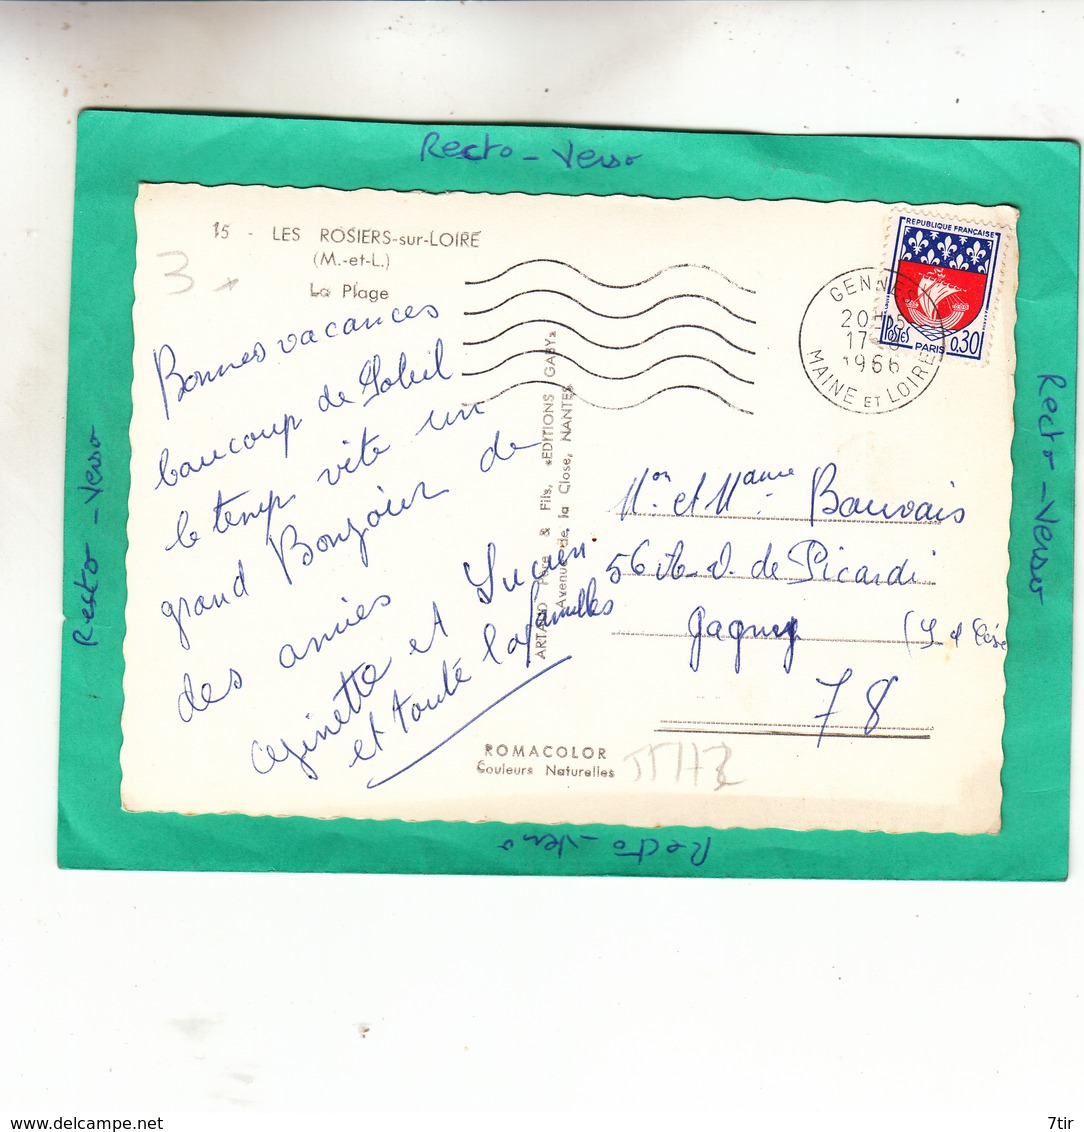 Recto - Verso
15 - LES ROSIERS-sur-LOIRE
(M.-et-L.)
La Plage
3
Bonnes vacances
beaucoup de Soleil
le temp vite un
grand Bonjour de
des amies
ginette et Lucien
et toute la familles
ARTAUD Père & Fils, «EDITIONS GABY»
Avenue de la Close, NANTES
REPUBLIQUE FRANÇAISE
Postes
PARIS 0,30
GENNES
20H15
17-8
1966
MAINE ET LOIRE
Mon et Mame Bauvais
56 de Picardi
gagny
78
ROMACOLOR
Couleurs Naturelles
Recto - Verso
Recto - Verso
Recto - Verso
www.delcampe.net
7tir